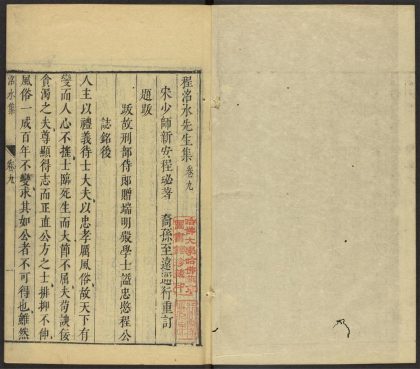 程洺水先生集 卷九
宋少師新安程珌著 裔孫至遠遜行重訂
題跋
跋故刑部侍郎贈端明殿學士謚忠愍程公
誌銘後
人主以禮義待士大夫以忠孝屬風俗故天下有
變而人心不搖士臨死生而大節不屈夫苟諛佞
貪濁之夫尊顯得志而正直公方之士排抑不伸
風俗一成百年不變求其如公者不可得也雖然
洺水集 卷九